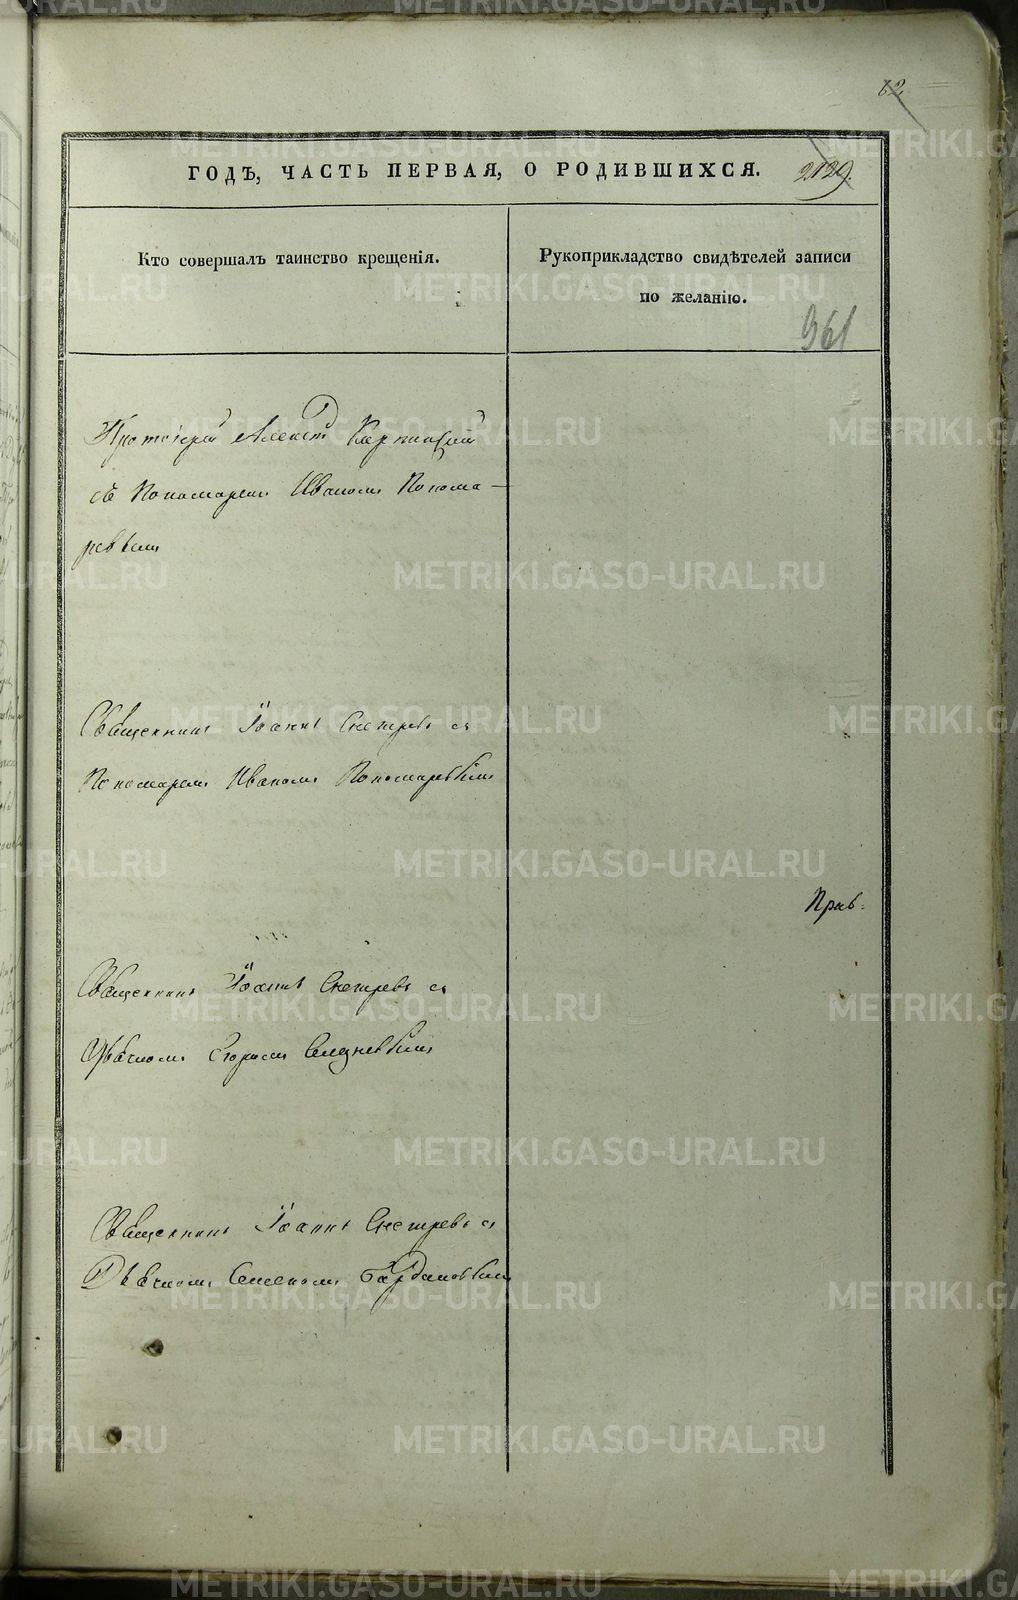 62
ГОДЪ, ЧАСТЬ ПЕРВАЯ, О РОДИВШИХСЯ.
2129.
Кто совершалъ таинство крещенія.
Рукоприкладство свидѣтелей записи
по желанію.
361
Протоіерей Алексѣй Карпинскій
съ Пономаремъ Иваномъ Понома-
ревымъ
Священникъ Іоаннъ Снегиревъ съ
Пономаремъ Иваномъ Пономаревымъ
Прав-
Священникъ Іоаннъ Снегиревъ съ
Священникъ Іоаннъ Снегиревъ съ
METRIKI.GASO-URAL.RU